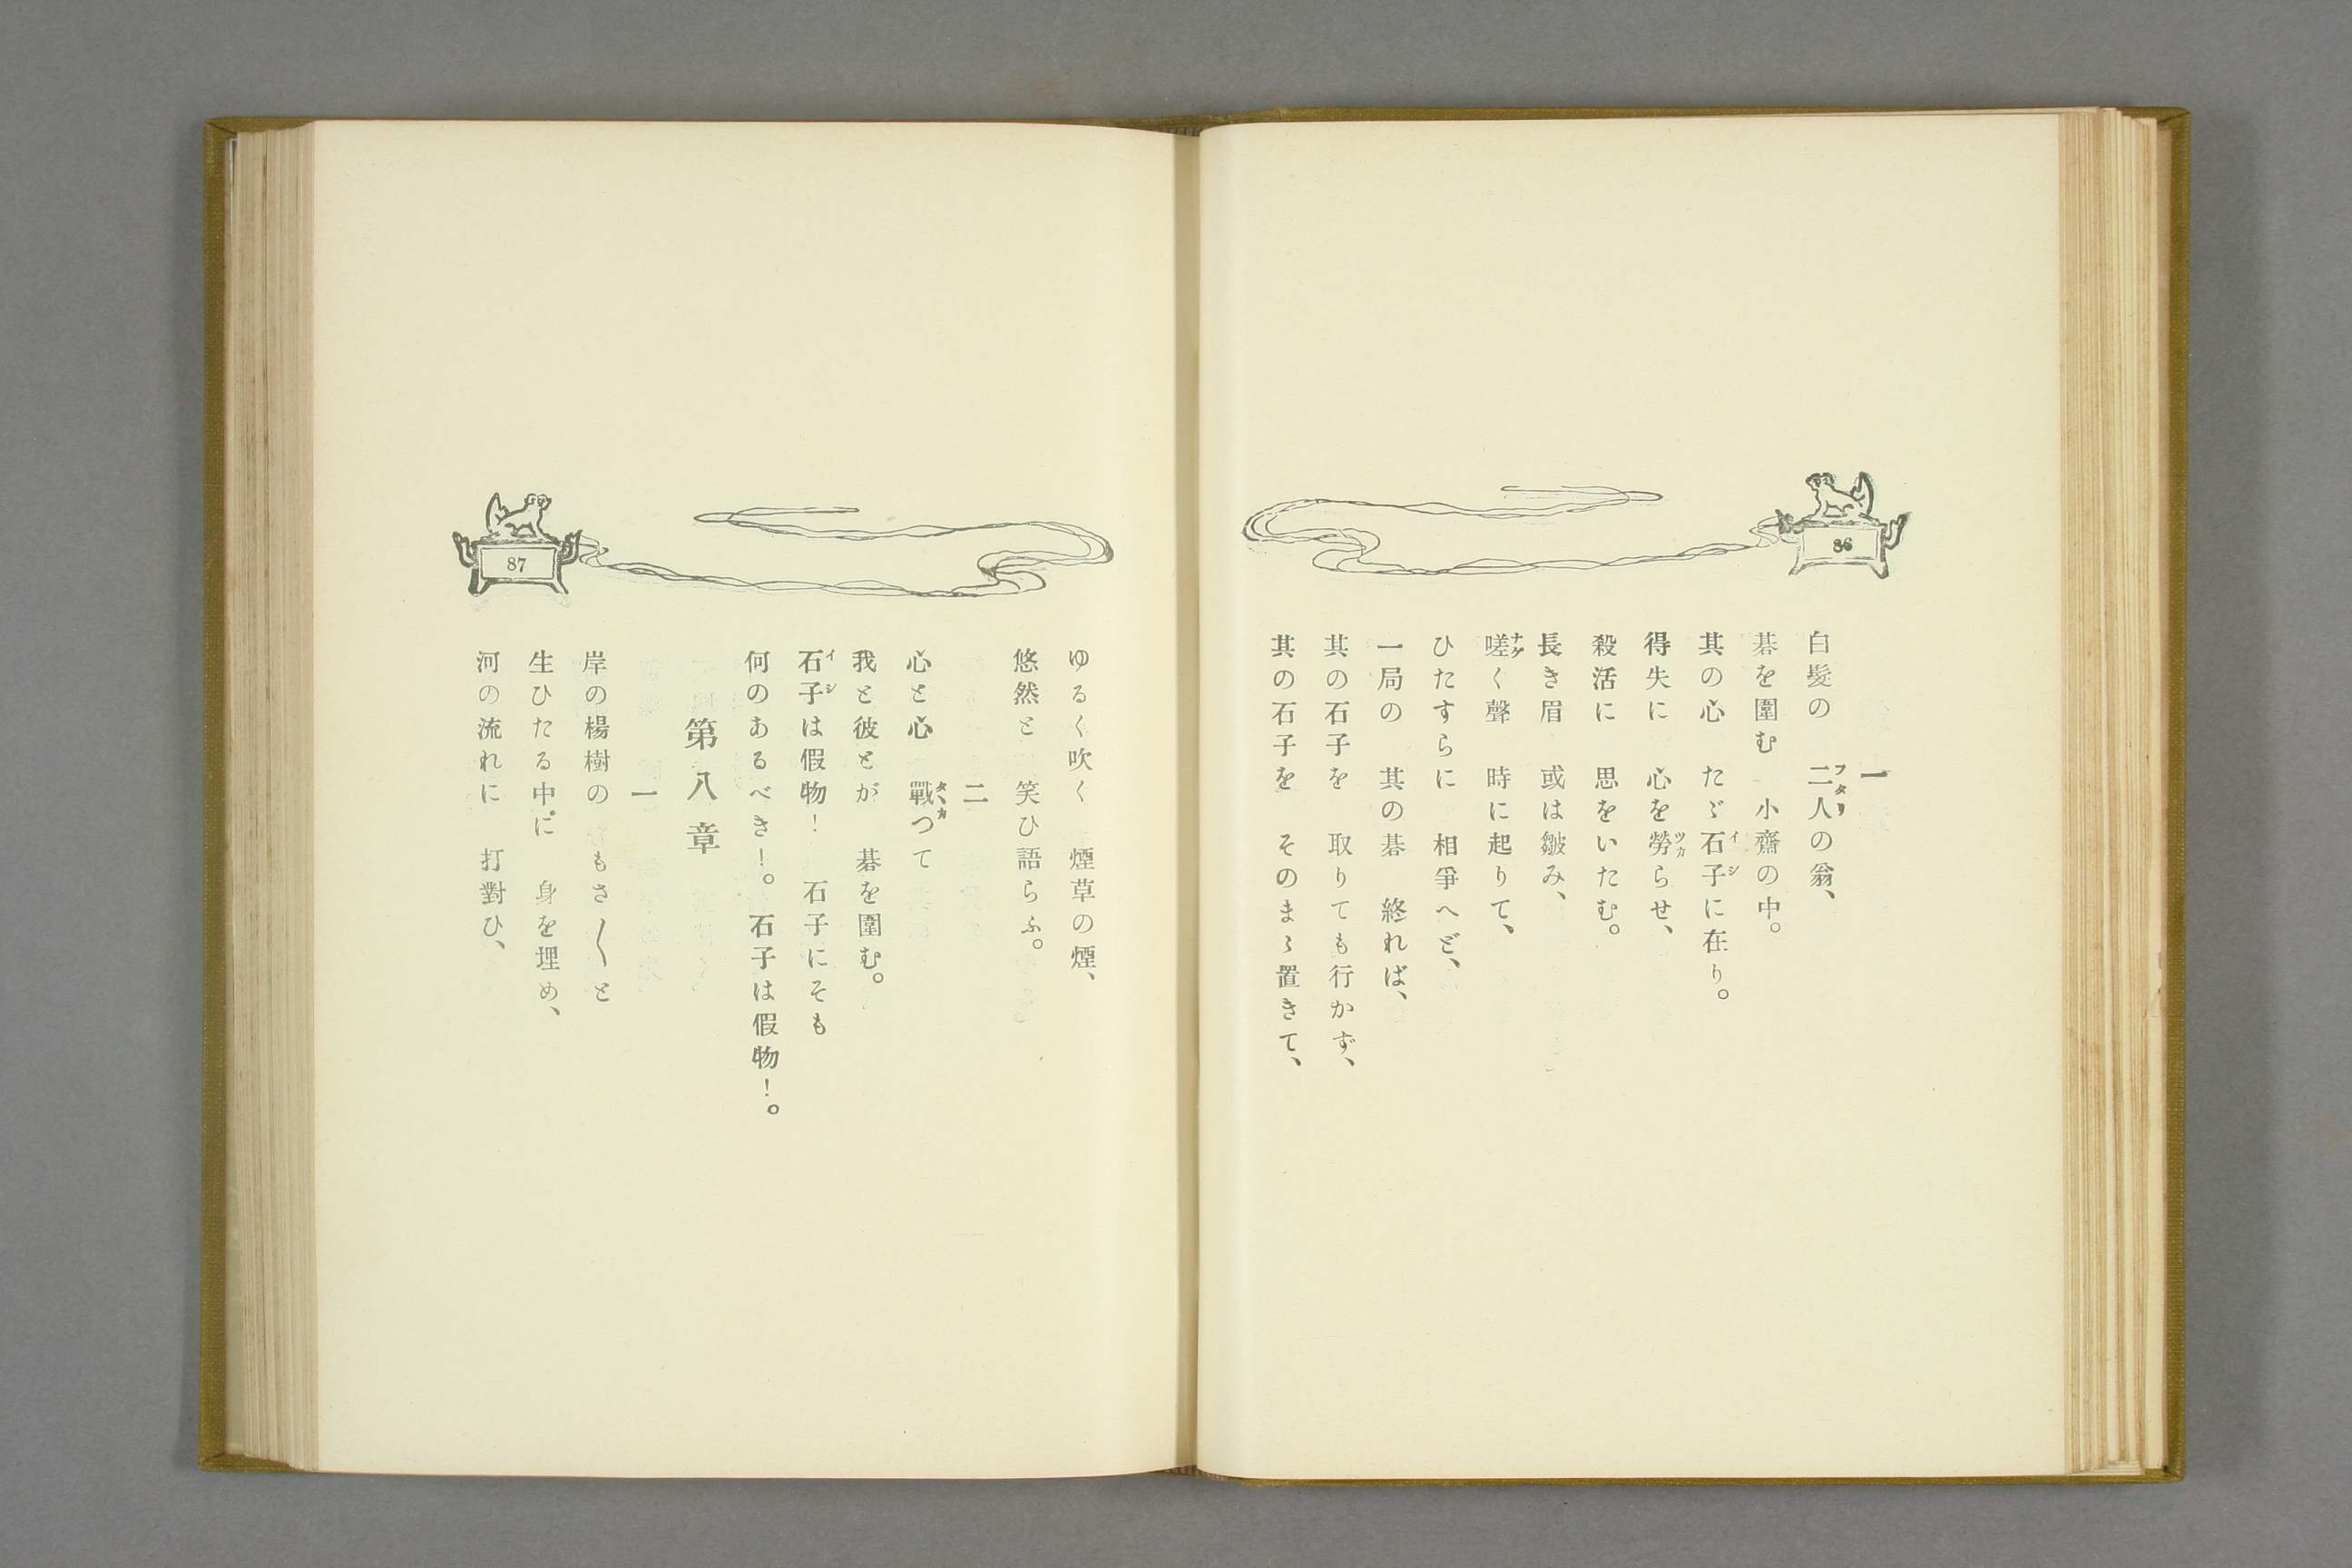 86
一
白髮の　二人の翁、
碁を圍む　小齋の中。
其の心　たゞ石子に在り。
得失に　心を勞らせ、
殺活に　思をいたむ。
長き眉　或は皺み、
嗟く聲　時に起りて、
ひたすらに　相爭へど、
一局の　其の碁　終れば、
其の石子を　取りても行かず、
其の石子を　そのまゝ置きて、
87
ゆるく吹く　煙草の煙、
悠然と　笑ひ語らふ。
二
心と心　戰つて
我と彼とが　碁を圍む。
石子は假物！　石子にそも
何のあるべき！。石子は假物！。
第八章
一
岸の楊樹の　もさ〱と
生ひたる中に　身を埋め、
河の流れに　打對ひ、